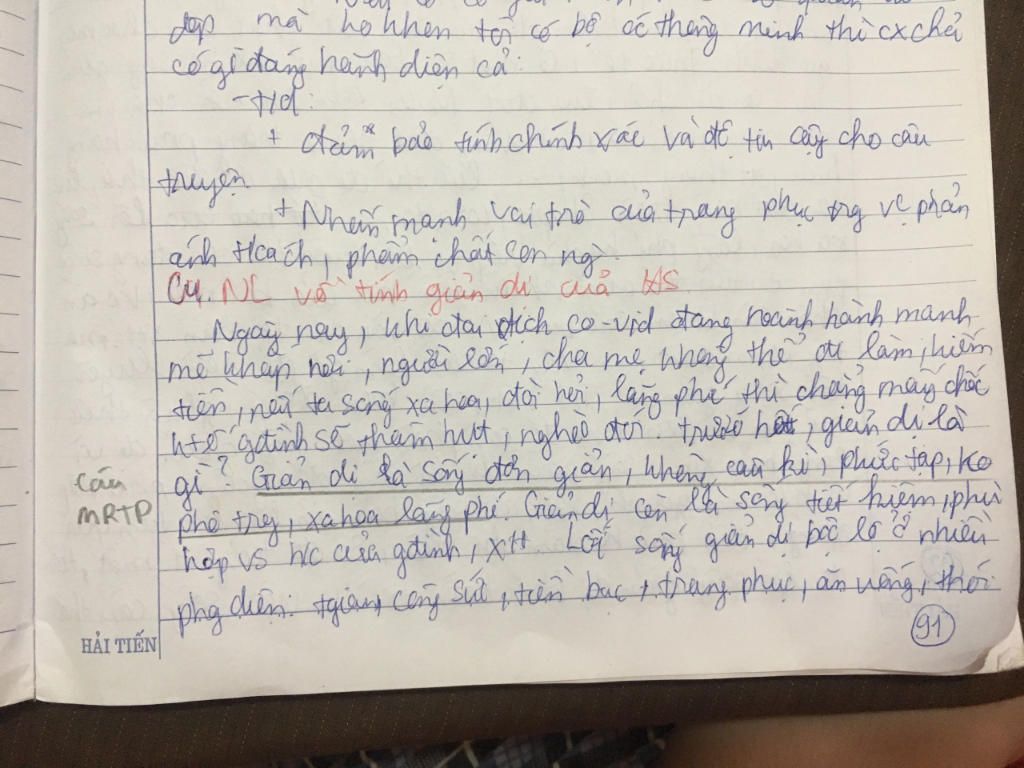 đẹp mà họ khen tôi có bộ óc thông minh thì cx chả
có gì đáng hành diện cả:
- Td:
+ đảm bảo tính chính xác và độ tin cậy cho câu
truyện
+ Nhấn mạnh vai trò của trang phục trg vc phản
ánh tcách, phẩm chất con ng.
C4. NL về tính giản dị của HS
Ngày nay, khi đại dịch co-vid đang hoành hành mạnh
mẽ khắp nơi, người lớn, cha mẹ không thể đi làm, kiếm
tiền, nếu ta sống xa hoa, đòi hỏi, lãng phí thì chẳng mấy chốc
ktế gđình sẽ thâm hụt, nghèo đói. trước hết, giản dị là
gì? Giản dị là sống đơn giản, không cầu kì, phức tạp, ko
phô trg, xa hoa lãng phí. Giản dị còn là sống tiết kiệm, phù
hợp vs h/c của gđình, XH. Lối sống giản dị bộc lộ ở nhiều
phg diện: tgian, công sức, tiền bạc, trang phục, ăn uống, thói
câu
MRTP
HẢI TIẾN
91